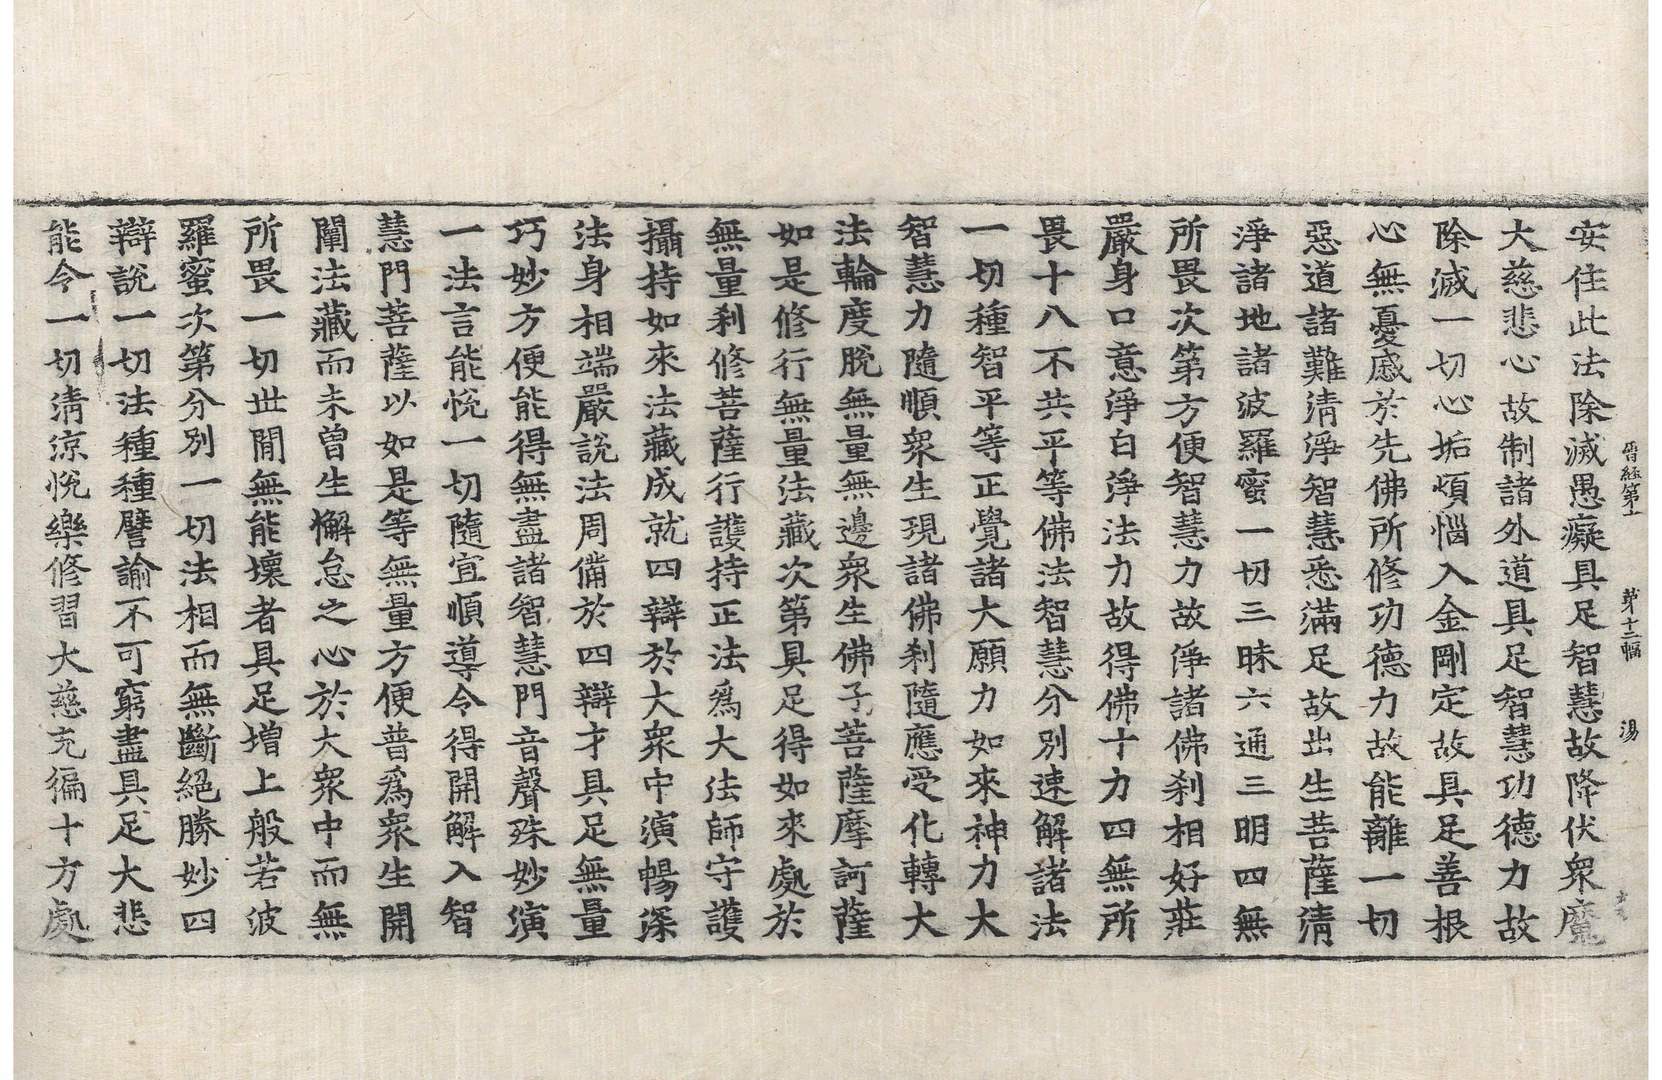 晉經第十　第十二幅　湯
安住此法除滅愚癡具足智慧故降伏衆魔
大慈悲心故制諸外道具足智慧功德力故
除滅一切心垢煩惱入金剛定故具足善根
心無憂慼於先佛所修功德力故能離一切
惡道諸難清淨智慧悉滿足故出生菩薩清
淨諸地諸波羅蜜一切三昧六通三明四無
所畏次第方便智慧力故淨諸佛刹相好莊
嚴身口意淨白淨法力故得佛十力四無所
畏十八不共平等佛法智慧分別速解諸法
一切種智平等正覺諸大願力如來神力大
智慧力隨順衆生現諸佛刹隨應受化轉大
法輪度脫無量無邊衆生佛子菩薩摩訶薩
如是修行無量法藏次第具足得如來處於
無量刹修菩薩行護持正法爲大法師守護
攝持如來法藏成就四辯於大衆中演暢深
法身相端嚴說法周備於四辯才具足無量
巧妙方便能得無盡諸智慧門音聲殊妙演
一法言能悅一切隨宜順導令得開解入智
慧門菩薩以如是等無量方便普爲衆生開
闡法藏而未曾生懈怠之心於大衆中而無
所畏一切世間無能壞者具足增上般若波
羅蜜次第分別一切法相而無斷絕勝妙四
辯說一切法種種譬諭不可窮盡具足大悲
能令一切清涼悅樂修習大慈充徧十方處